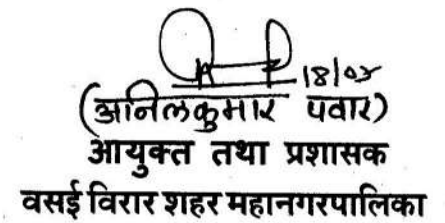 18/02
(अनिलकुमार पवार)
आयुक्त तथा प्रशासक
वसई विरार शहर महानगरपालिका